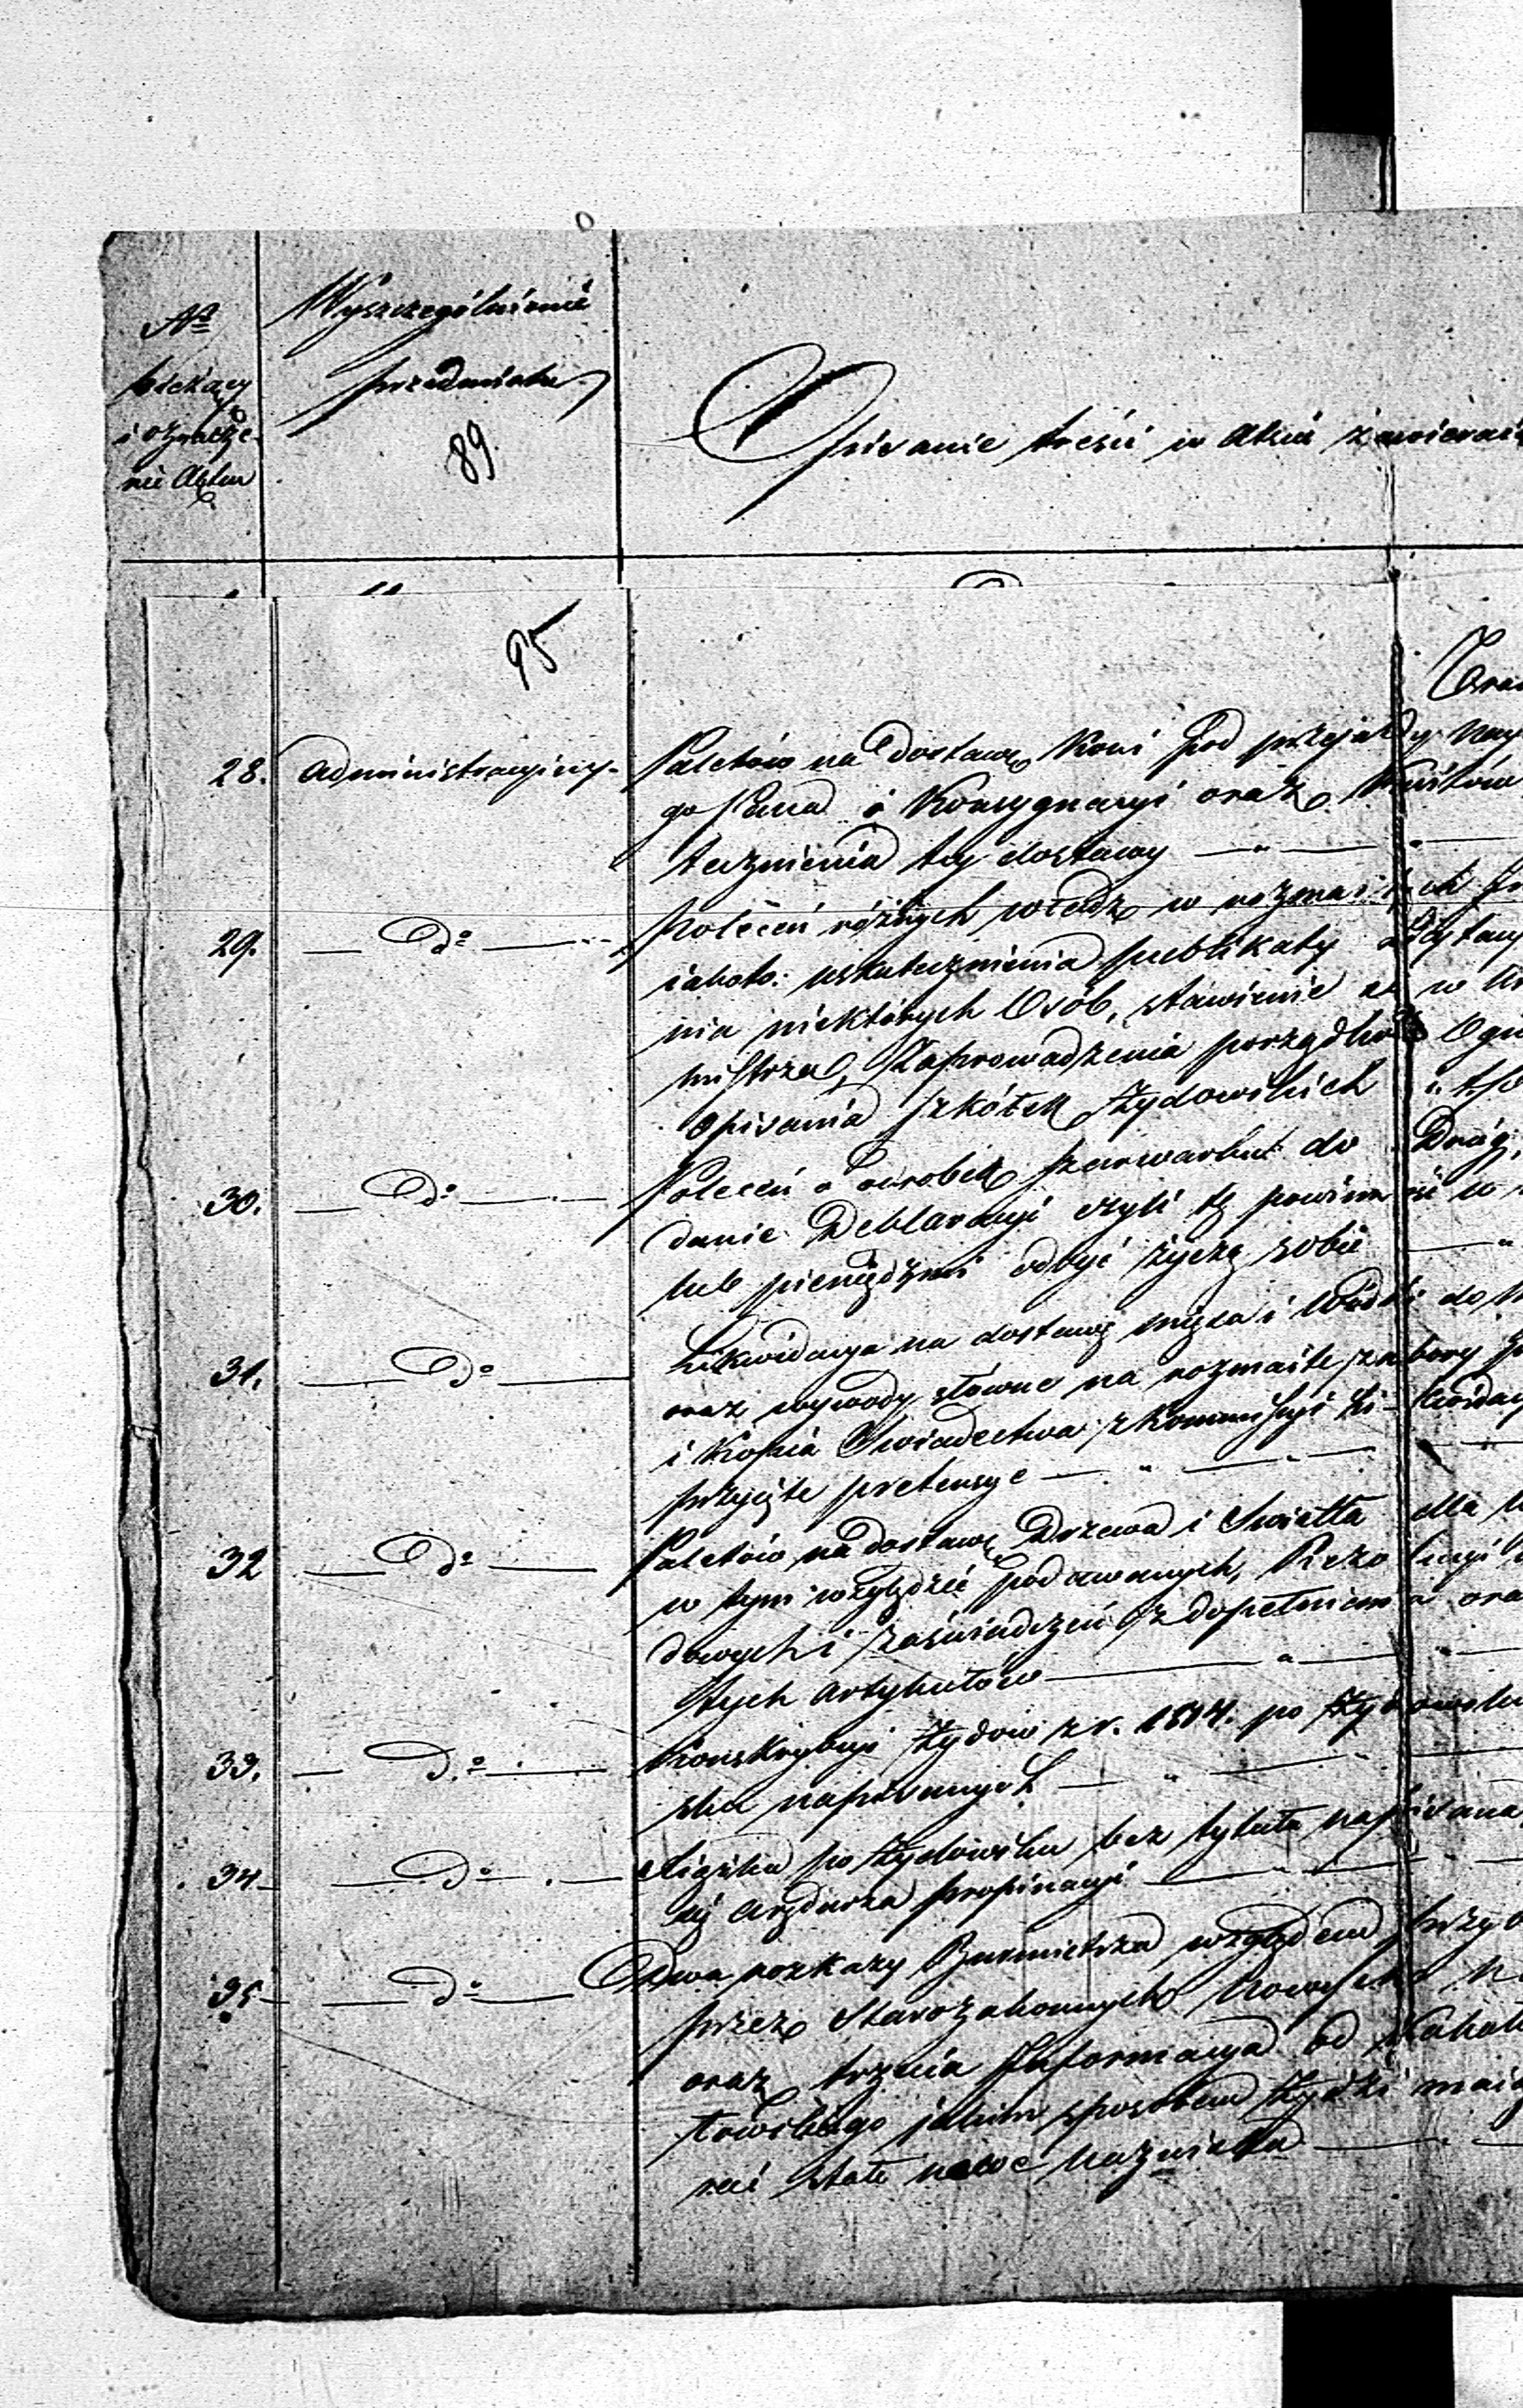 Nr
bieżący
i oznacze-
nie Aktu
Wyszczególnienie
przedmiotu
89.
Opisanie treści w Akcie zawieraią
95
28. Administracyiny. Paletów na dostawę Koni pod przejazdy Nay
go Pana i Konsygnacyi oraz Kwitów
tecznienia tey dostawy
29. Do Poleceń różnych władz w rozmaitych
iakoto: uskutecznienia publikaty
nia niektórych Osób, stawienie w
mistrza, Zaprowadzenia porządku Ogn
opisania szkółek Żydowskich
30. Do Poleceń o zarobek szarwarku do Dróg,
danie Deklaracyi czyli tę powinność w
lub pieniędzmi odbyć życzą sobie
31. Do Likwidacya na dostawę mięsa i Wódki do
oraz wywody słowne na rozmaite zabory
i Kopia Świadectwa z Kommissyi Likwidacy
przyięte pretensye
32 Do Paletów na dostawę Drzewa i Światła dla
w tym względzie podawanych, Rezolucyi
dowych i zaświadczeń z dopełnienia ora
tych artykułów
33. Do Konskrybcyi Żydów z r. 1814. po Żydowsku
napisanych
34 Do Xiążka po Żydowsku bez tytułu napisana,
Arędarza propinacyi
35 Do Dwa rozkazy Burmistrza względem przy
przez Starozakonnych Nowych
oraz trzecia Informacya od Kahału
jakim sposobem Żydzi maią
rać stałe nowe Nazwiska